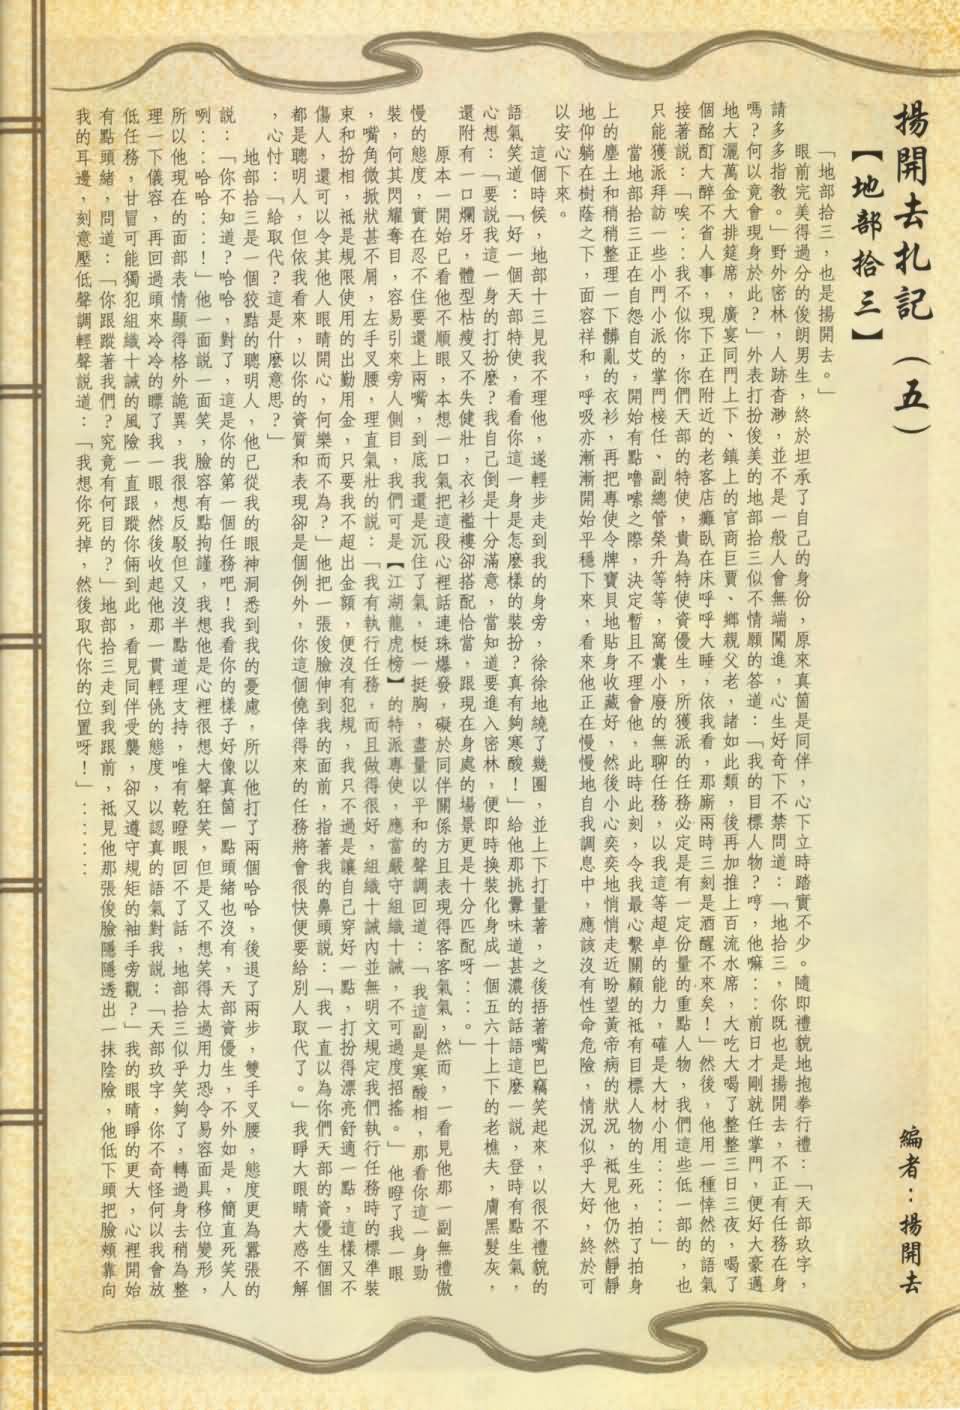 揚開去扎記（五）
編者：揚開去
【地部拾三】
「地部拾三，也是揚開去。」
眼前完美得過分的俊朗男生，終於坦承了自己的身份，原來真箇是同伴，心下立時踏實不少。隨即禮貌地抱拳行禮：「天部玖字，
請多多指教。」野外密林，人跡杳渺，並不是一般人會無端闖進，心生好奇下不禁問道：「地拾三，你既也是揚開去，不正有任務在身
嗎？何以竟會現身於此？」外表打扮俊美的地部拾三似不情願的答道：「我的目標人物？哼，他嘛：：前日才剛就任掌門，便好大豪邁
地大灑萬金大排筵席，廣宴同門上下、鎮上的官商巨賈、鄉親父老，諸如此類，後再加推上百流水席，大吃大喝了整整三日三夜，喝了
個酩酊大醉不省人事，現下正在附近的老客店癱臥在床呼呼大睡，依我看，那廝兩時三刻是酒醒不來矣！」然後，他用一種悻然的語氣
接著說：「唉：：：我不似你，你們天部的特使，貴為特使資優生，所獲派的任務必定是有一定份量的重點人物，我們這些低一部的，也
只能獲派拜訪一些小門小派的掌門接任、副總管榮升等等，窩囊小廢的無聊任務，以我這等超卓的能力，確是大材小用：：：：」
當地部拾三正在自怨自艾，開始有點嚕嗦之際，決定暫且不理會他，此時此刻，令我最心繫關顧的祇有目標人物的生死，拍了拍身
上的塵土和稍稍整理一下髒亂的衣衫，再把專使令牌寶貝地貼身收藏好，然後小心奕奕地悄悄走近盼望黃帝病的狀況，祗見他仍然靜靜
地仰躺在樹蔭之下，面容祥和，呼吸亦漸漸開始平穩下來，看來他正在慢慢地自我調息中，應該沒有性命危險，情況似乎大好，終於可
以安心下來。
這個時候，地部十三見我不理他，遂輕步走到我的身旁，徐徐地繞了幾圈，並上下打量著，之後捂著嘴巴竊笑起來，以很不禮貌的
語氣笑道：「好一個天部特使，看看你這一身是怎麼樣的裝扮？真有夠寒酸！」給他那挑釁味道甚濃的話語這麼一說，登時有點生氣，
心想：「要說我這一身的打扮麼？我自己倒是十分滿意，當知道要進入密林，便即時換裝化身成一個五六十上下的老樵夫，膚黑髮灰，
還附有一口爛牙，體型枯瘦又不失健壯，衣衫襤褸卻搭配恰當，跟現在身處的場景更是十分匹配呀：：：。」
原本一開始已看他不順眼，本想一口氣把這段心裡話連珠爆發，礙於同伴關係方且表現得客客氣氣，然而，一看見他那一副無禮傲
慢的態度，實在忍不住要還上兩嘴，到底我還是沉住了氣，梃一挺胸，盡量以平和的聲調回道：「我這副是寒酸相，那看你這一身勁
裝，何其閃耀奪目，容易引來旁人側目，我們可是【江湖龍虎榜】的特派專使，應當嚴守組織十誡，不可過度招搖。」他瞪了我一眼
，嘴角微掀狀甚不屑，左手叉腰，理直氣壯的說：「我有執行任務，而且做得很好，組織十誡內並無明文規定我們執行任務時的標準裝
束和扮相，祗是規限使用的出勤用金，只要我不超出金額，便沒有犯規，我只不過是讓自己穿好一點，打扮得漂亮舒適一點，這樣又不
傷人，還可以令其他人眼睛開心，何樂而不為？」他把一張俊臉伸到我的面前，指著我的鼻頭說：「我一直以為你們天部的資優生個個
都是聰明人，但依我看來，以你的資質和表現卻是個例外，你這個僥倖得來的任務將會很快便要給別人取代了。」我睜大眼睛大惑不解
，心忖：「給取代？這是什麼意思？」
地部拾三是一個狡黠的聰明人，他已從我的眼神洞悉到我的憂慮，所以他打了兩個哈哈，後退了兩步，雙手叉腰，態度更為囂張的
說：「你不知道？哈哈，對了，這是你的第一個任務吧！我看你的樣子好像真箇一點頭緒也沒有，天部資優生，不外如是，簡直死笑人
咧：：哈哈：：！」他一面說一面笑，臉容有點拘謹，我想他是心裡很想大聲狂笑，但是又不想笑得太過用力恐令易容面具移位變形，
所以他現在的面部表情顯得格外詭異，我很想反駁但又沒半點道理支持，唯有乾瞪眼回不了話，地部拾三似乎笑夠了，轉過身去稍為整
理一下儀容，再回過頭來冷冷的瞟了我一眼，然後收起他那一貫輕佻的態度，以認真的語氣對我說：「天部玖字，你不奇怪何以我會放
低任務，甘冒可能獨犯組織十誡的風險一直跟蹤你倆到此，看見同伴受襲，卻又遵守規矩的袖手旁觀？」我的眼睛睜的更大，心裡開始
有點頭緒，問道：「你跟蹤著我們？究竟有何目的？」地部拾三走到我跟前，祗見他那張俊臉隱隱透出一抹陰險，他低下頭把臉頰靠向
我的耳邊，刻意壓低聲調輕聲說道：「我想你死掉，然後取代你的位置呀！」：：：：：：